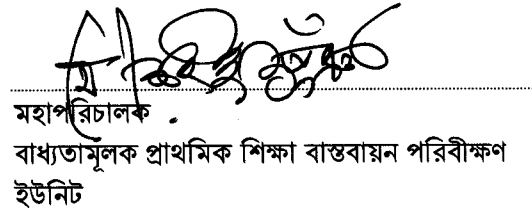 মহাপরিচালক
বাধ্যতামূলক প্রাথমিক শিক্ষা বাস্তবায়ন পরিবীক্ষণ
ইউনিট